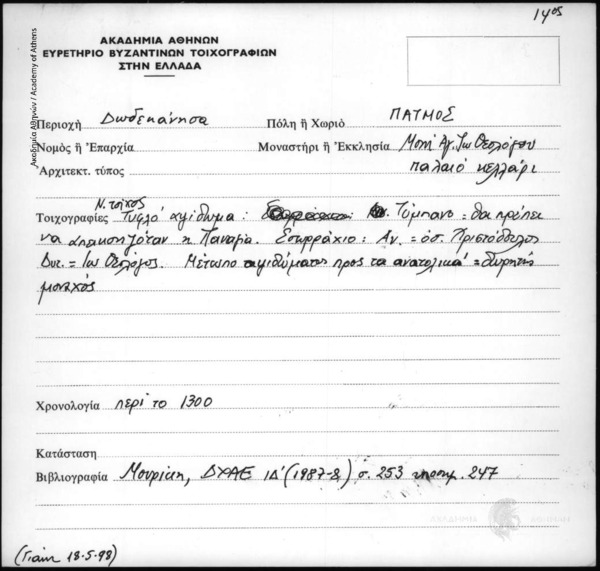 14ος
ΑΚΑΔΗΜΙΑ ΑΘΗΝΩΝ
ΕΥΡΕΤΗΡΙΟ ΒΥΖΑΝΤΙΝΩΝ ΤΟΙΧΟΓΡΑΦΙΩΝ
ΣΤΗΝ ΕΛΛΑΔΑ
Ακαδημία Αθηνών / Academy of Athens
Περιοχὴ Δωδεκάνησα Πόλη ἢ Χωριό ΠΑΤΜΟΣ
Νομὸς ἢ Ἐπαρχία Μοναστήρι ἢ Ἐκκλησία Μονή Αγ. Ιω Θεολόγου
Ἀρχιτεκτ. τύπος παλαιό κελλάρι
Ν. τοίχος
Τοιχογραφίες Τυφλό αψίδωμα: Τύμπανο = θα πρέπει
να απεικονιζόταν η Παναγία. Εσωρράχιο: Αν. = όσ. Χριστόδουλος
Δυτ. = Ιω Θεολόγος. Μέτωπο αψιδώματος προς τα ανατολικά =
μοναχός
Χρονολογία περί το 1300
Κατάσταση
Βιβλιογραφία Μουρίκη, ΔΧΑΕ ΙΔ' (1987-8) σ. 253 υποσημ. 247
ΑΚΑΔΗΜΙΑ ΑΘΗΝΩΝ
18-5-98)